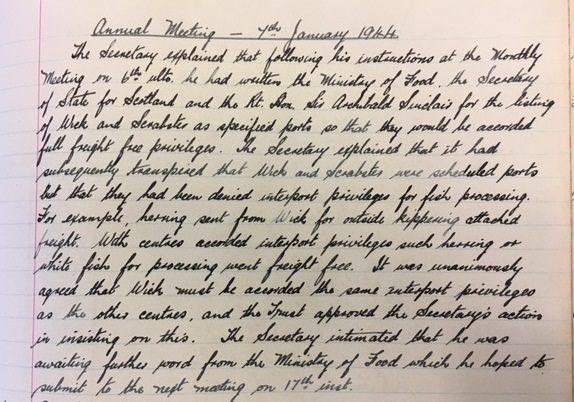 Annual Meeting – 7th January 1944.
The Secretary explained that following his instructions at the Monthly
Meeting on 6th ulto. he had written the Ministry of Food, the Secretary
of State for Scotland and the Rt. Hon. Sir Archbald Sinclair for the listing
of Wick and Scrabster as specified ports so that they would be accorded
full freight free privileges. The Secretary explained that it had
subsequently transpired that Wick and Scrabster were scheduled ports
but that they had been denied interport privileges for fish processing.
For example, herring sent from Wick for outside kippering attached
freight. With centres accorded interport privileges such herring or
white fish for processing went freight free. It was unanimously
agreed that Wick must be accorded the same interport privileges
as the other centres, and the Trust approved the Secretary's action
in insisting on this. The Secretary intimated that he was
awaiting further word from the Ministry of Food which he hoped to
submit to the next meeting on 17th inst.